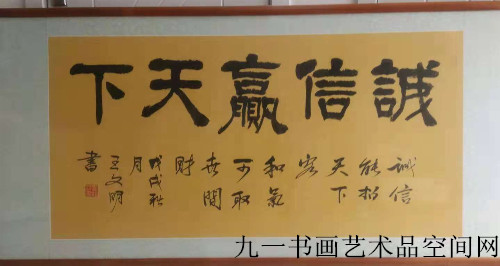 誠信贏天下
誠信
能招
天下
客
和氣
可取
世間
財
戊戌秋
月
王文明
書
九一书画艺术品空间网